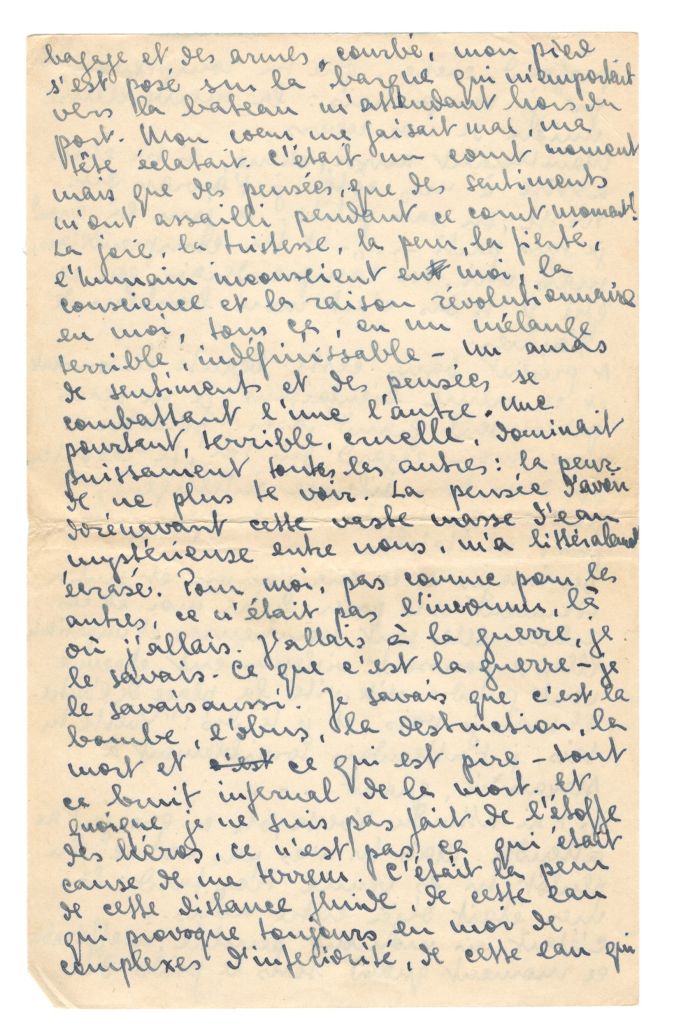 bagage et des armes, courbé, mon pied
s'est posé sur la barque qui m'emportait
vers la bateau m'attendant hors du
port. Mon coeur me faisait mal, ma
tête éclatait. C'était un court moment
mais que des pensées, que des sentiments
m'ont assailli pendant ce court moment!
La joie, la tristesse, la peur, la fierté,
l'humain inconscient en moi, la
conscience et la raison révolutionnaire
en moi, tous ça, en un mélange
terrible, indéfinissable – un amas
de sentiments et des pensées se
combattant l'une l'autre. Une
pourtant, terrible, cruelle, dominait
puissament toutes les autres: la peur
de ne plus te voir. La pensée d'avoir
dorénavant cette vaste masse d'eau
mystérieuse entre nous, m'a littéralement
écrasé. Pour moi, pas comme pour les
autres, ce n'était pas l'inconnu, là
où j'allais. J'allais à la guerre, je
le savais. Ce que c'est la guerre – je
le savais aussi. Je savais que c'est la
bombe, l'obus, la destruction, la
mort et c'est ce qui est pire – tout
ce bruit infernal de la mort. Et
quoique je ne suis pas fait de l'étoffe
des héros, ce n'est pas ça qui était
cause de me terreur. C'était la peur
de cette distance fluide, de cette eau
qui provoque toujours en moi de
complexes d'inferiorité, de cette eau qui